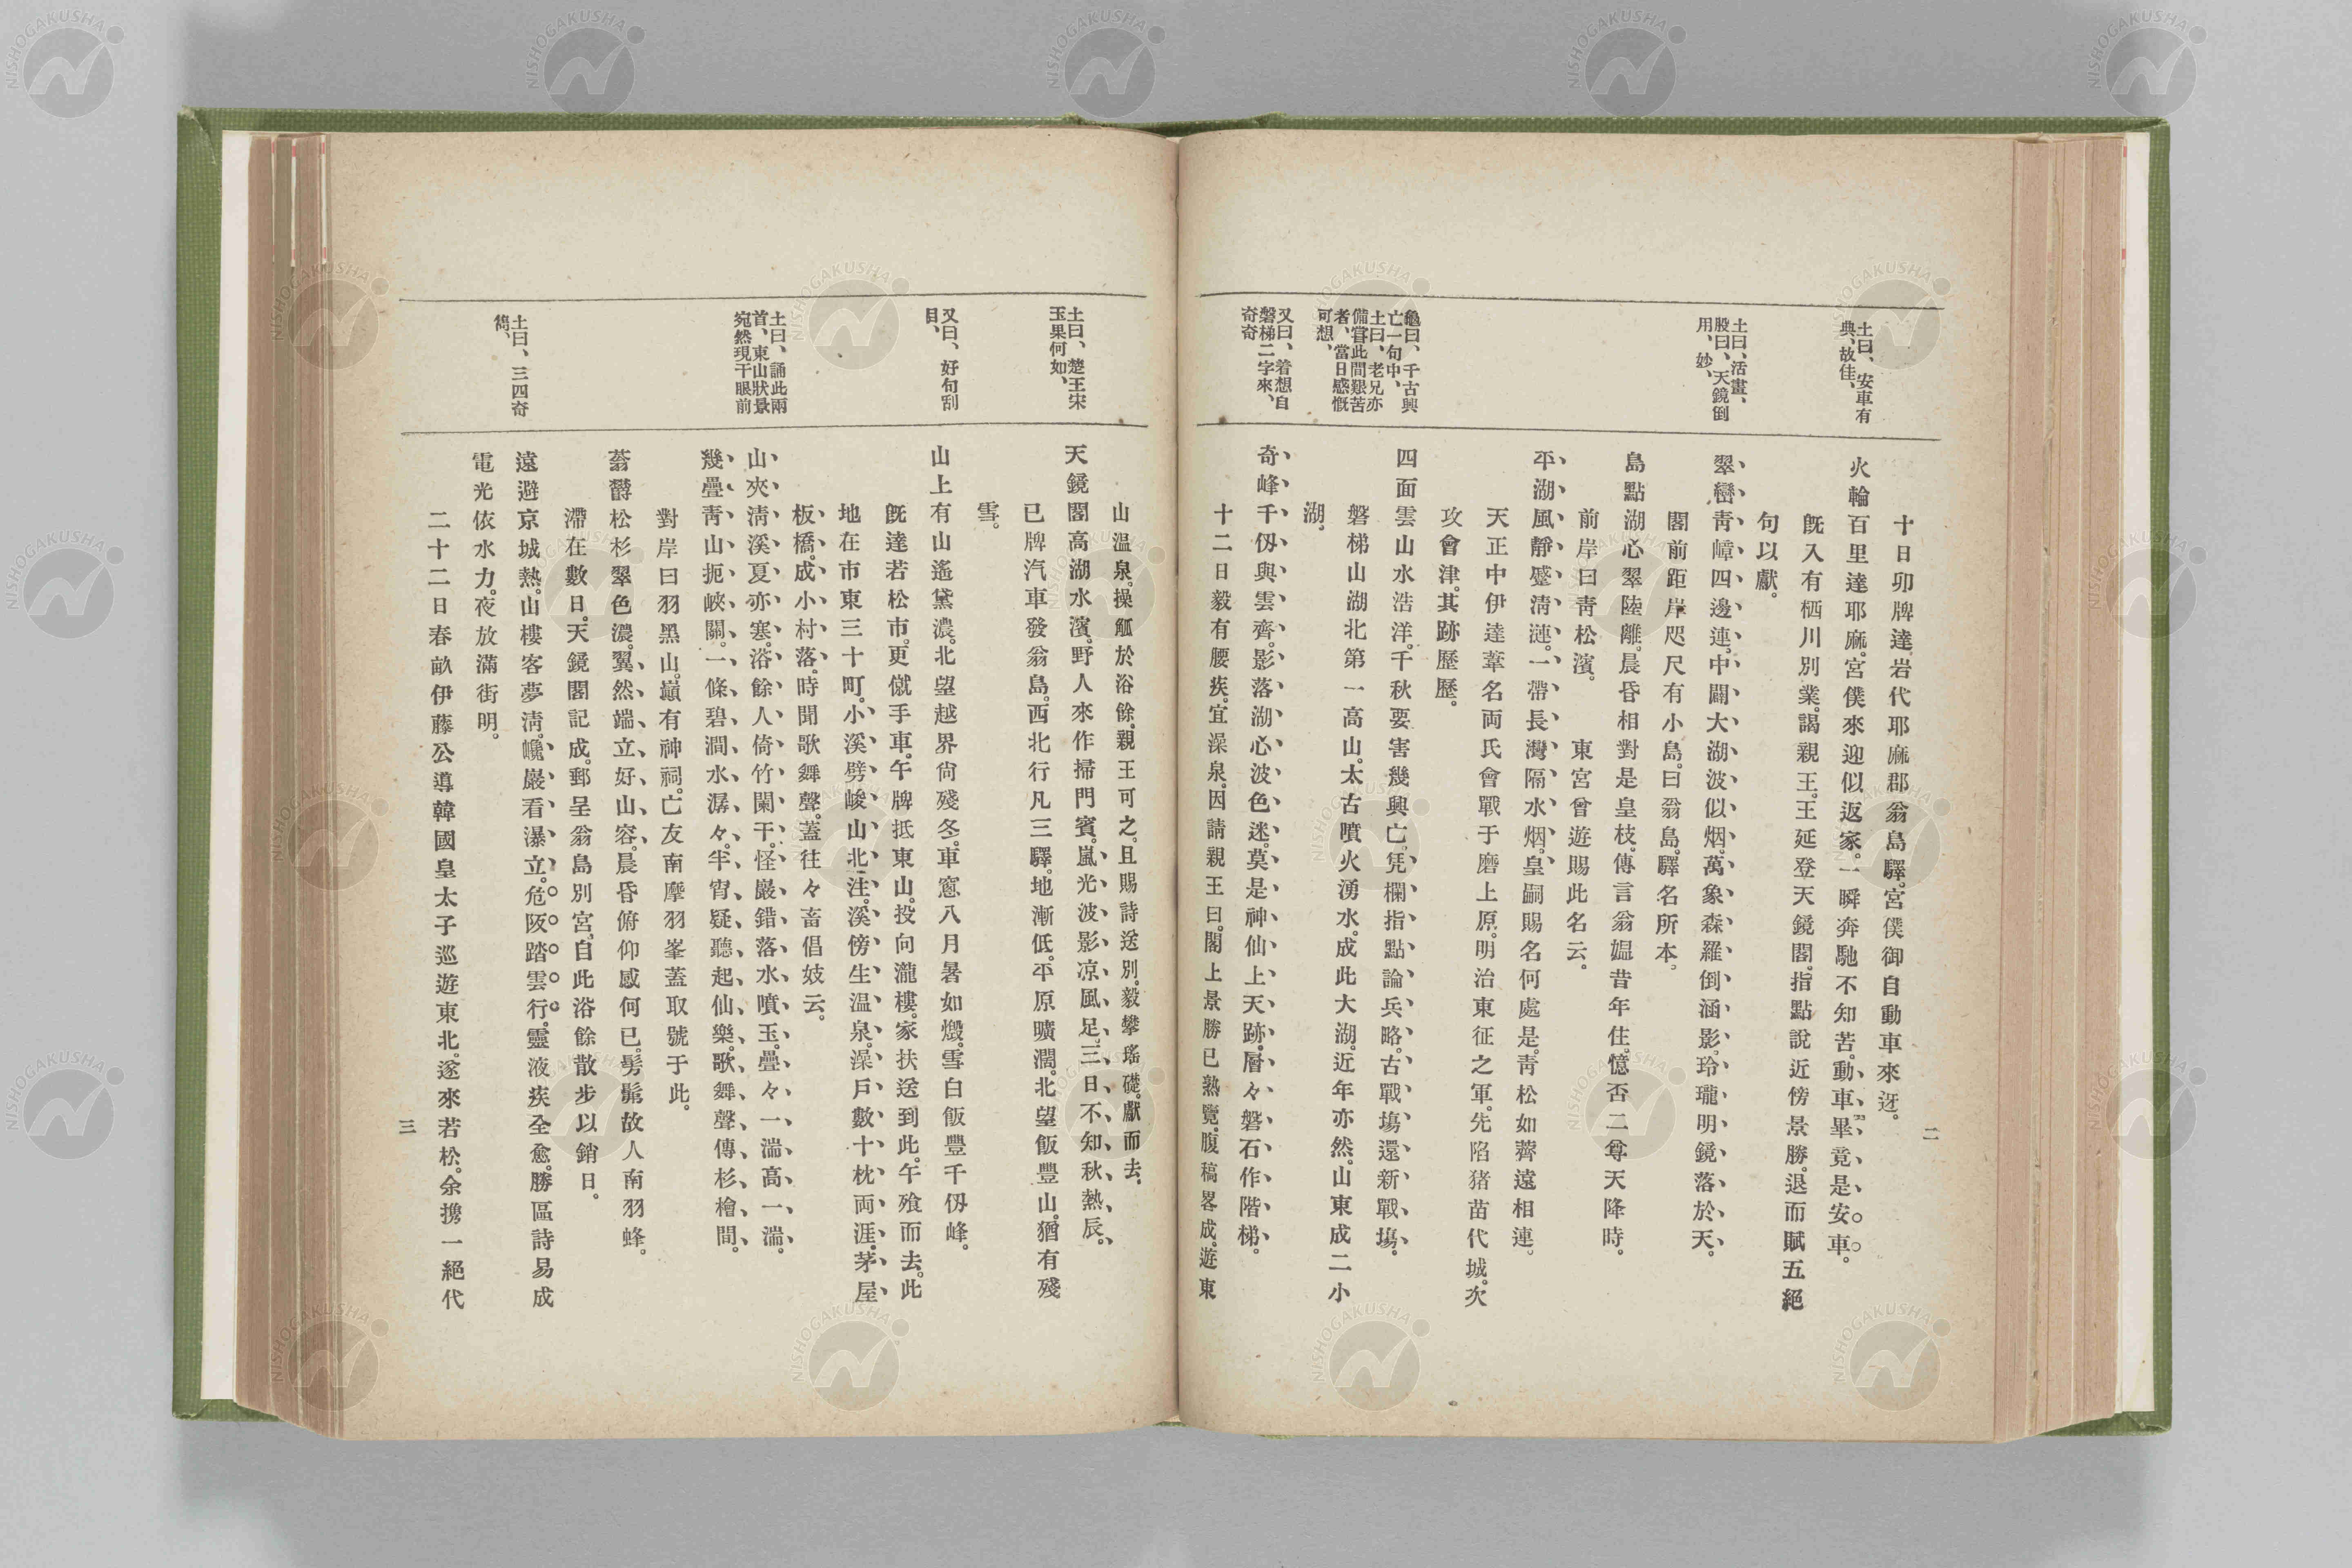 二
土曰、安車有
典、故佳、
十日卯牌達岩代耶麻郡翁島驛。宮僕御自動車來迓。
火輪百里達耶麻。宮僕來迎似返家。一瞬奔馳不知苦。動車畢竟是安車。
既入有栖川別業。謁親王。王延登天鏡閣。指點說近傍景勝。退而賦五絕
句以獻。
土曰、活畫、
股曰、天鏡倒
用、妙、
翠巒靑嶂四邊連。中闢大湖波似烟。萬象森羅倒涵影。玲瓏明鏡落於天。
閣前距岸咫尺有小島。曰翁島。驛名所本。
島點湖心翠陸離。晨昏相對是皇枝。傳言翁媼昔年住。憶否二尊天降時。
前岸曰靑松濱。　東宮曾遊賜此名云。
平湖風靜蹙淸漣。一帶長灣隔水烟。皇嗣賜名何處是。靑松如薺遠相連。
天正中伊達葦名両氏會戰于磨上原。明治東征之軍。先陷猪苗代城。次
攻會津。其跡歷歷。
龜曰、千古興
亡一句中、
土曰、老兄亦
備嘗此間艱苦
者、當日感慨
可想、
四面雲山水浩洋。千秋要害幾興亡。凭欄指點論兵略。古戰塲還新戰塲。
磐梯山湖北第一高山。太古噴火湧水。成此大湖。近年亦然。山東成二小
湖。
又曰、着想自
磐梯二字來、
奇奇
奇峰千仭與雲齊。影落湖心波色迷。莫是神仙上天跡。層々磐石作階梯。
十二日毅有腰疾。宜澡泉。因請親王曰。閣上景勝已熟覽。腹稿畧成。遊東
山溫泉。操觚於浴餘。親王可之。且賜詩送別。毅攀瑤礎。獻而去。
土曰、楚王宋
玉果何如、
天鏡閣高湖水濱。野人來作掃門賓。嵐光波影凉風足。三日不知秋熱辰。
已牌汽車發翁島。西北行凡三驛。地漸低。平原曠濶。北望飯豐山。猶有殘
雪。
又曰、好句刮
目、
山上有山遙黛濃。北望越界尙殘冬。車窓八月暑如燬。雪白飯豐千仭峰。
既達若松市。更僦手車。午牌抵東山。投向瀧樓。家扶送到此。午飱而去。此
地在市東三十町。小溪劈峻山北注。溪傍生溫泉。澡戶數十枕両涯。茅屋
板橋。成小村落。時聞歌舞聲。蓋往々畜倡妓云。
土曰、誦此兩
首、東山狀景
宛然現于眼前
山夾淸溪夏亦寒。浴餘人倚竹闌干。怪巖錯落水噴玉。疊々一湍高一湍。
幾疊靑山扼峽關。一條碧澗水潺々。半宵疑聽起仙樂。歌舞聲傳杉檜間。
對岸曰羽黑山。巔有神祠。亡友南摩羽峯蓋取號于此。
蓊欝松杉翠色濃。翼然端立好山容。晨昏俯仰感何已。髣髴故人南羽蜂。
滯在數日。天鏡閣記成。郵呈翁島別宮。自此浴餘散步以銷日。
土曰、三四奇
儁、
遠避京城熱。山樓客夢淸。巉巖看瀑立。危阪踏雲行。靈液疾全愈。勝區詩易成
電光依水力。夜放滿街明。
二十二日春畝伊藤公導韓國皇太子巡遊東北。遂來若松。余携一絕代
三